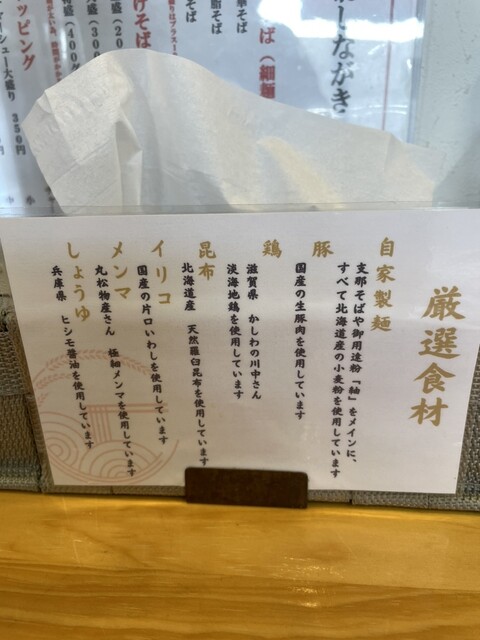 ながき
ば（細麺
脂そば
げそば
ッピング
ャーシュー大盛り 350円
厳選食材
自家製麺
支那そばや御用達粉「紬」をメインに、
すべて北海道産の小麦粉を使用しています
豚
国産の生豚肉を使用しています
鶏
滋賀県 かしわの川中さん
淡海地鶏を使用しています
昆布
北海道産 天然羅臼昆布を使用しています
イリコ
国産の片口いわしを使用しています
メンマ
丸松物産さん 極細メンマを使用しています
しょうゆ
兵庫県 ヒシモ醤油を使用しています